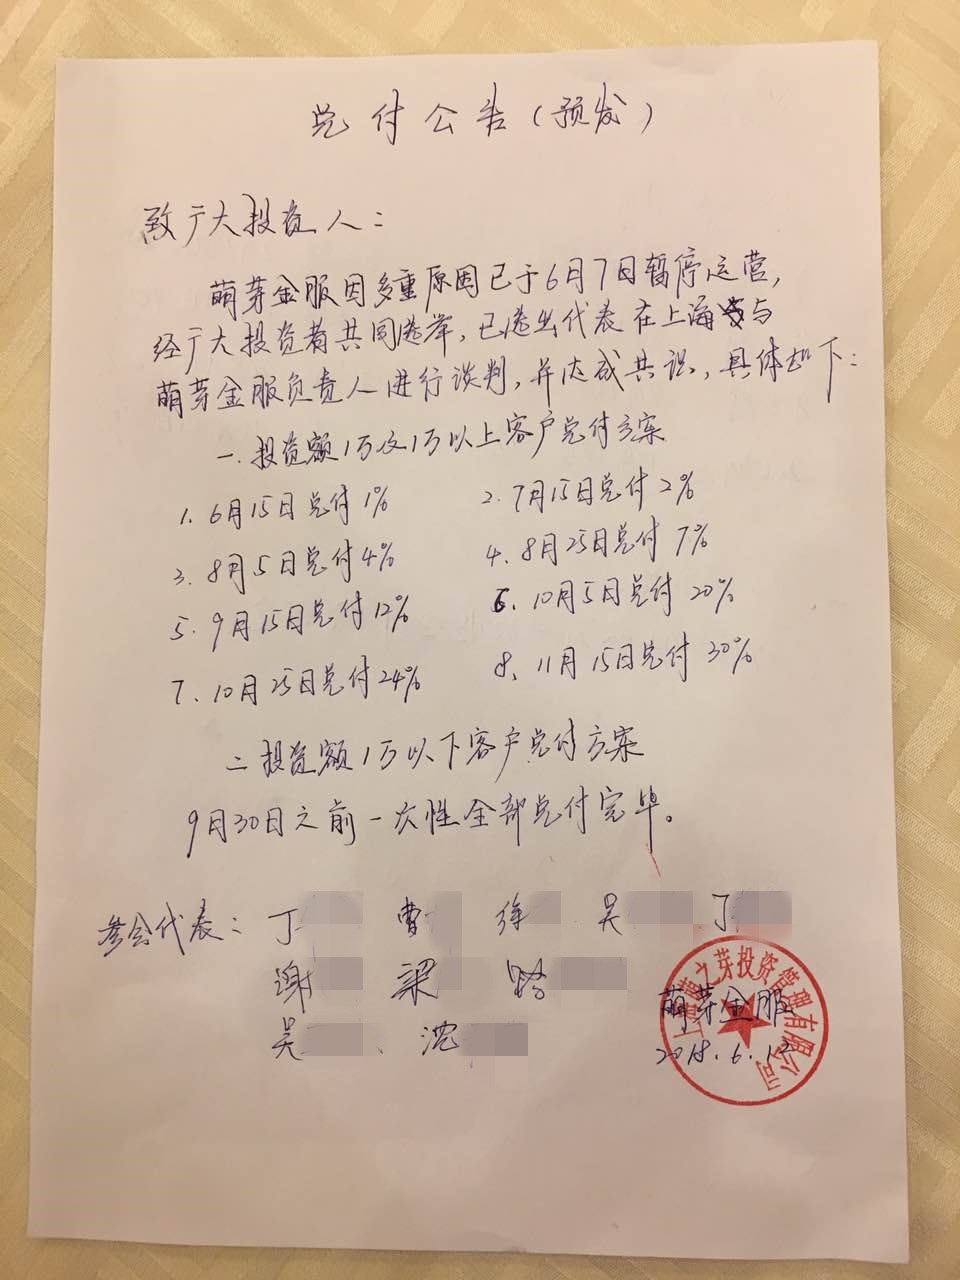 兑付公告(预发)
致广大投资人:
萌芽金服因多重原因已于6月7日暂停运营,
经广大投资者共同选举,已选出代表在上海与
萌芽金服负责人进行谈判,并达成共识,具体如下:
一.投资额1万及1万以上客户兑付方案
1.6月15日兑付1% 2.7月15日兑付2%
3.8月5日兑付4% 4.8月25日兑付7%
5.9月15日兑付12% 6.10月5日兑付20%
7、10月25日兑付24% 8、11月15日兑付30%
二投资额1万以下客户兑付方案
9月30日之前一次性全部兑付完毕。
参会代表: 丁 曹 徐 吴 丁
谢 梁
吴 、沈
萌芽金服
2018.6.12
上海萌之芽投资管理有限公司